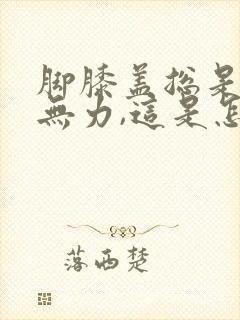 脚膝盖总是
無力,這是怎
落西楚